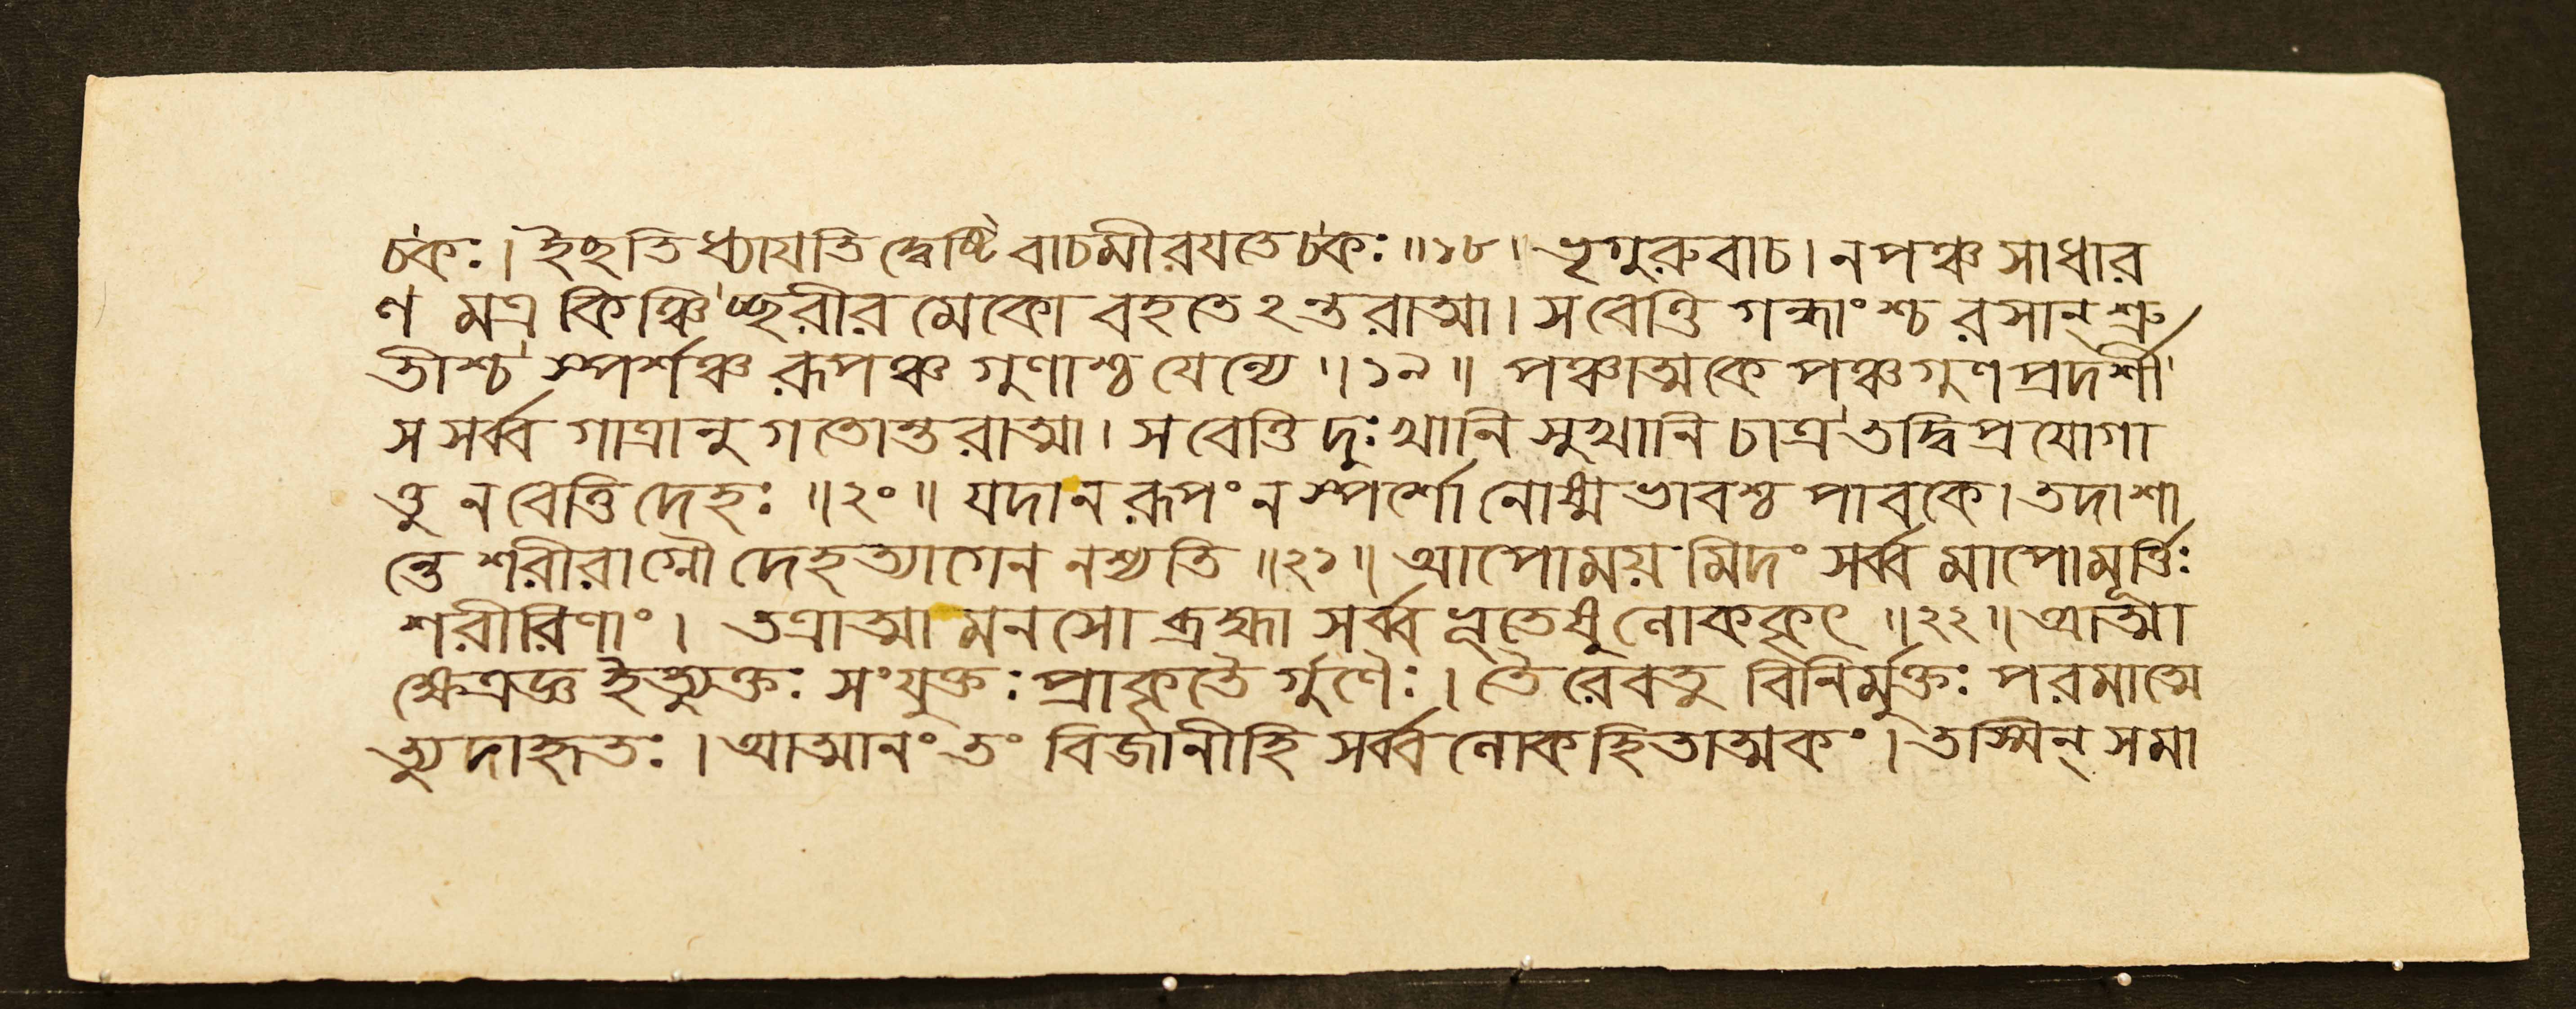 চকঃ। ইচ্ছতি ধ্যাযতি দ্বেষ্টি বাচমীরযতে চকঃ॥১৮॥ ভৃগুরুবাচ। ন পঞ্চ সাধার
ণ মত্র কিঞ্চিচ্ছরীর মেকো বহতেঽন্তরাত্মা। স বেত্তি গন্ধাংশ্চ রসান্ শ্রু
তীশ্চ স্পর্শঞ্চ রূপঞ্চ গুণাশ্চ যেন্যে॥১৯॥ পঞ্চাত্মকে পঞ্চগুণপ্রদর্শী
স সর্ব্ব গাত্রানুগতোন্তরাত্মা। স বেত্তি দুঃখানি সুখানি চাত্র তদ্বিপ্রযোগা
ত্তু ন বেত্তি দেহঃ॥২০॥ যদা ন রূপং ন স্পর্শো নোষ্মভাবশ্চ পাবকে। তদা শা
ন্তে শরীরাগ্নৌ দেহত্যাগেন নশ্যতি॥২১॥ আপোময় মিদং সর্ব্ব মাপোমূর্ত্তিঃ
শরীরিণাং। তত্রাত্মা মনসো ব্রহ্মা সর্ব্ব ভূতেষু লোককৃৎ॥২২॥ আত্মা
ক্ষেত্রজ্ঞ ইত্যুক্তঃ সংযুক্তঃ প্রাকৃতৈ র্গুণৈঃ। তৈরেবতু বিনির্মুক্তঃ পরমাত্মে
ত্যুদাহৃতঃ। আত্মানং তং বিজানীহি সর্ব্ব লোক হিতাত্মকং। তস্মিন্ সমা